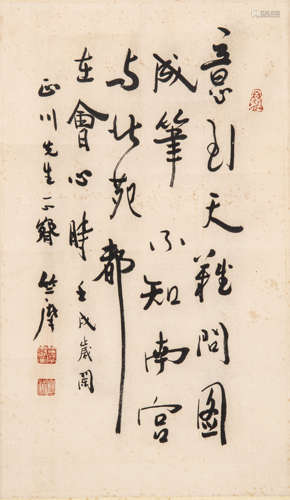 意到天難問圖
成筆不知南宮
與北苑都
在會心時 壬戌歲闌
正川先生正
竺摩